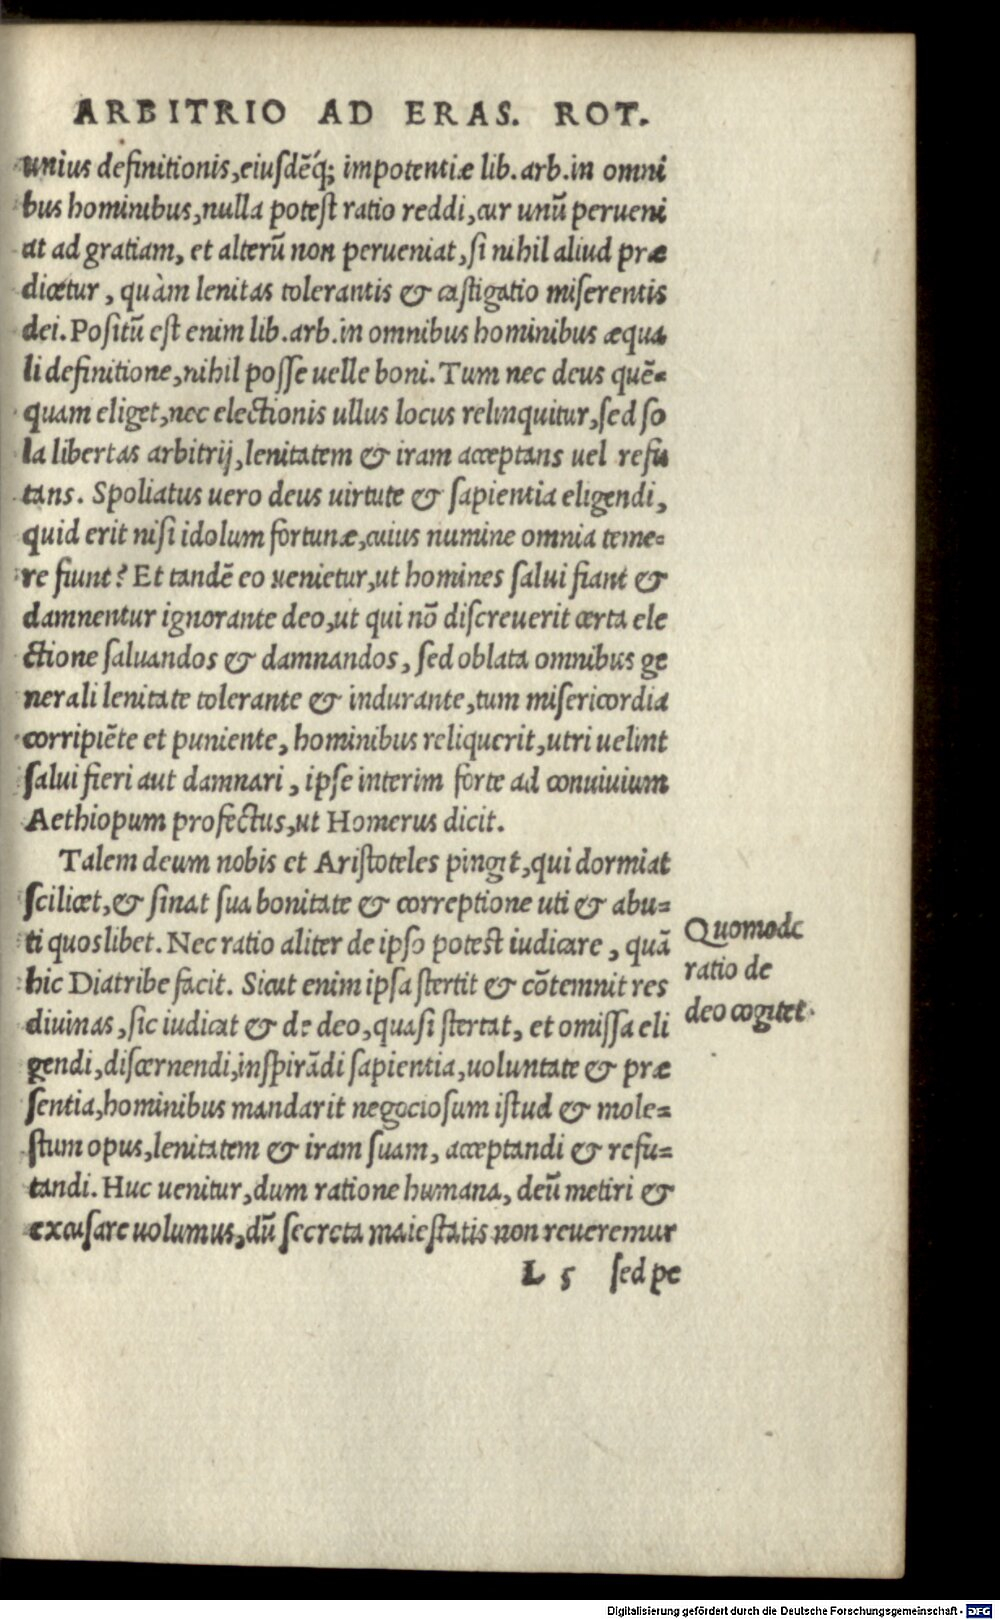 ARBITRIO AD ERAS. ROT.
unius definitionis, eiusdẽq́; impotentiæ lib. arb. in omni
bus hominibus, nulla potest ratio reddi, cur unũ perueni
at ad gratiam, et alterũ non perueniat, si nihil aliud præ
dicetur, quàm lenitas tolerantis & castigatio miserentis
dei. Positũ est enim lib. arb. in omnibus hominibus æqua
li definitione, nihil posse uelle boni. Tum nec deus quẽ=
quam eliget, nec electionis ullus locus relinquitur, sed so
la libertas arbitrij, lenitatem & iram acceptans uel refu
tans. Spoliatus uero deus uirtute & sapientia eligendi,
quid erit nisi idolum fortunæ, cuius numine omnia teme=
re fiunt? Et tandẽ eo uenietur, ut homines salui fiant &
damnentur ignorante deo, ut qui nõ discreuerit certa ele
ctione saluandos & damnandos, sed oblata omnibus ge
nerali lenitate tolerante & indurante, tum misericordia
corripiẽte et puniente, hominibus reliquerit, utri uelint
salui fieri aut damnari, ipse interim forte ad conuiuium
Aethiopum profectus, ut Homerus dicit.
Talem deum nobis et Aristoteles pingit, qui dormiat
scilicet, & sinat sua bonitate & correptione uti & abu=
ti quoslibet. Nec ratio aliter de ipso potest iudicare, quã
hic Diatribe facit. Sicut enim ipsa stertit & cõtemnit res
diuinas, sic iudicat & de deo, quasi stertat, et omissa eli
gendi, discernendi, inspirãdi sapientia, uoluntate & præ
sentia, hominibus mandarit negociosum istud & mole=
stum opus, lenitatem & iram suam, acceptandi & refu=
tandi. Huc uenitur, dum ratione humana, deũ metiri &
excusare uolumus, dũ secreta maiestatis non reueremur
Quomodo
ratio de
deo cogitet.
L 5 sed pe
Digitalisierung gefördert durch die Deutsche Forschungsgemeinschaft - DFG